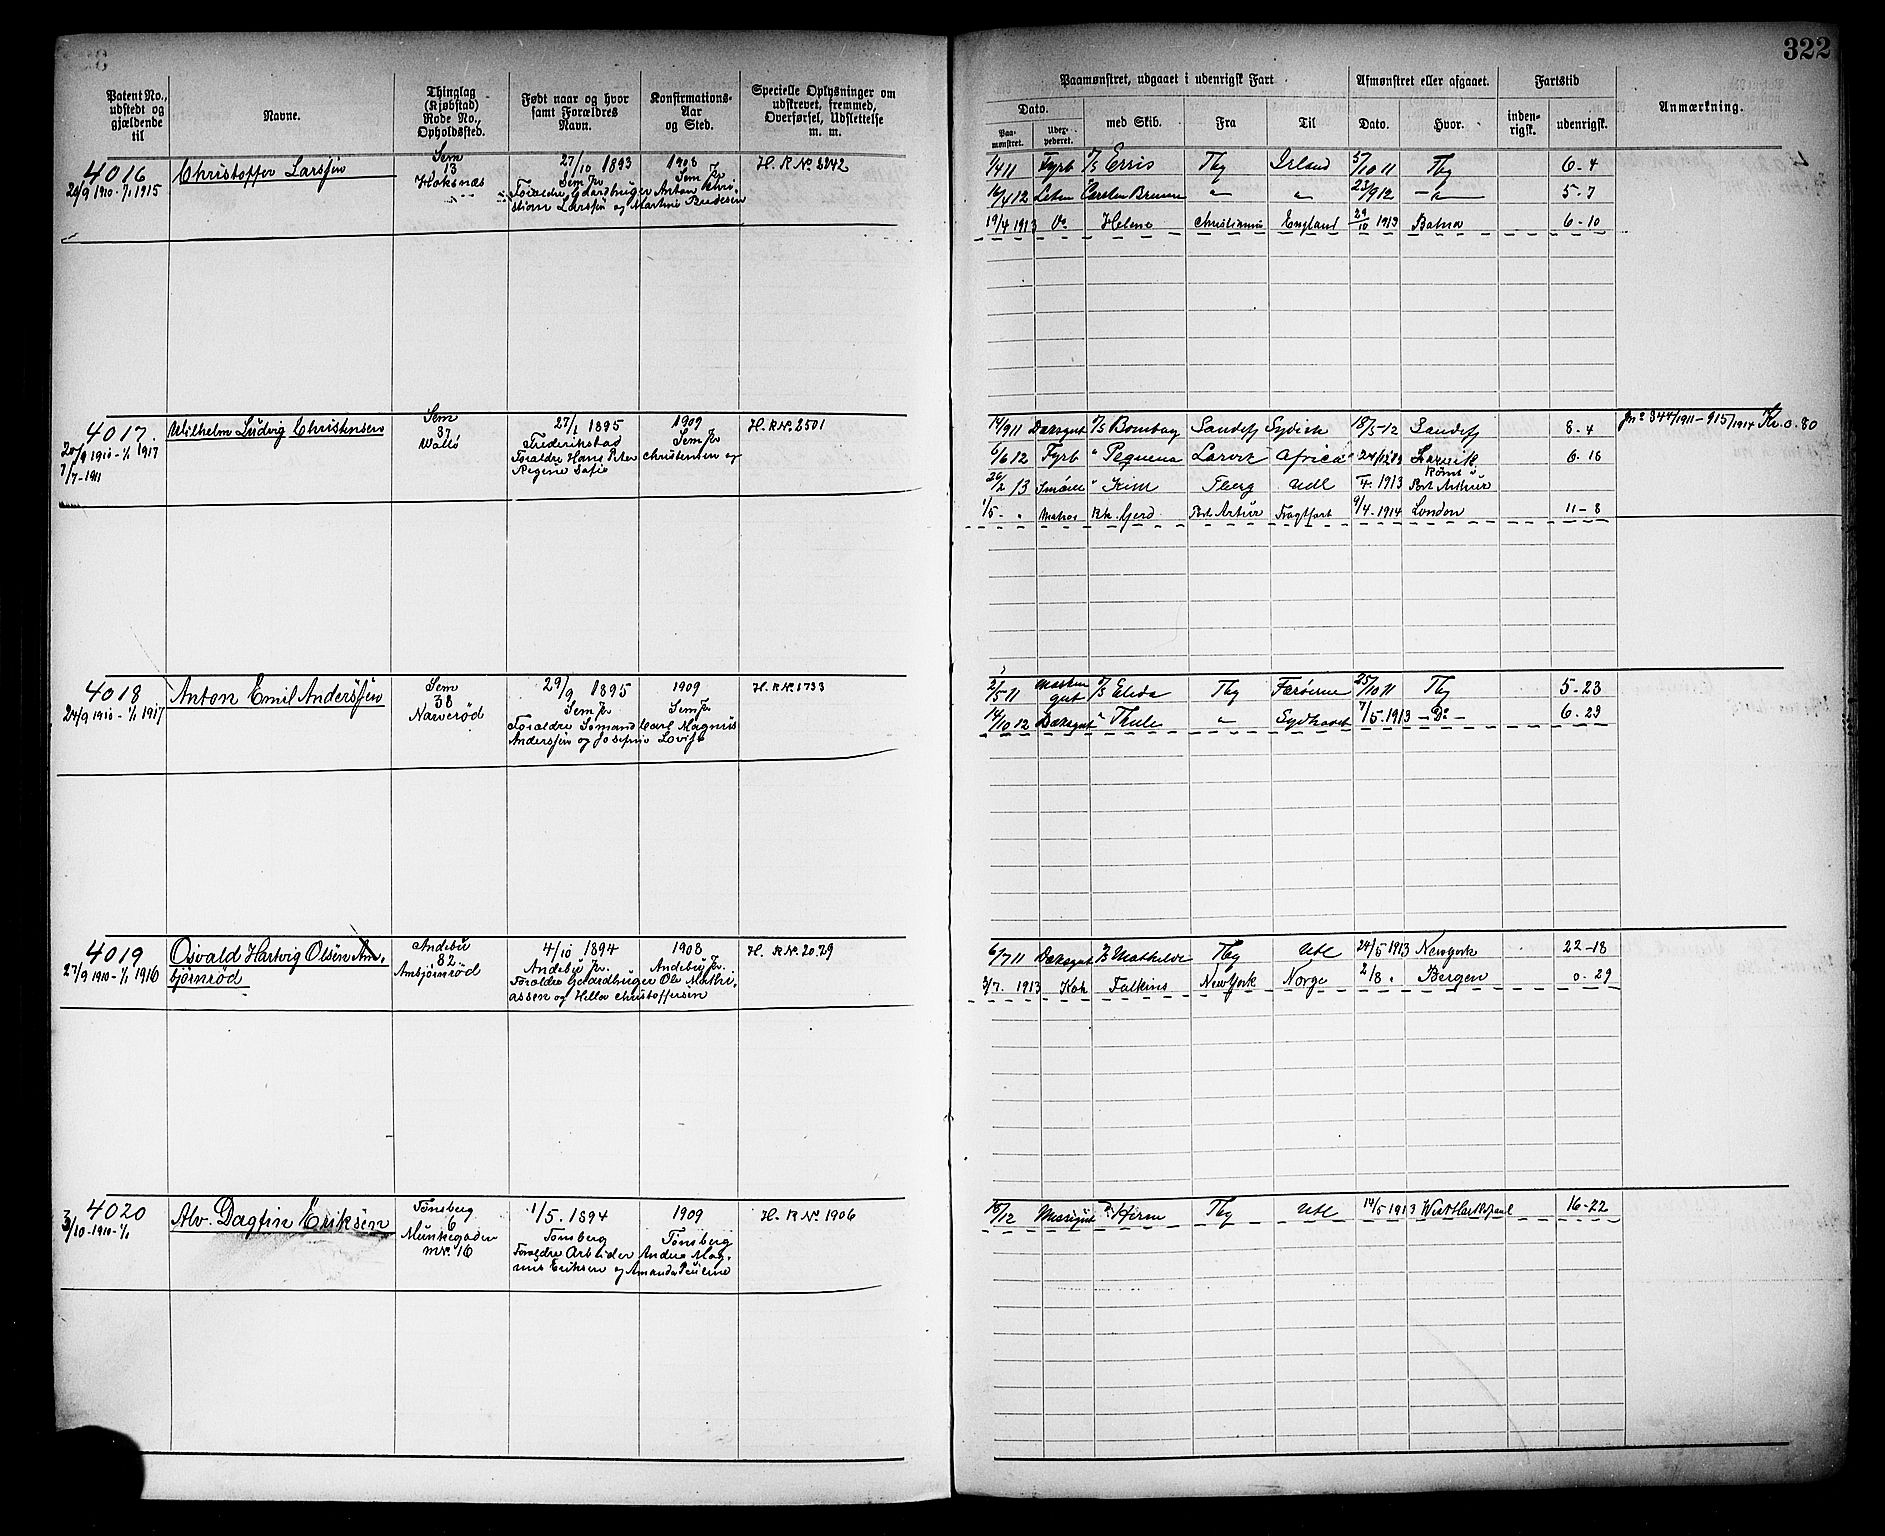 322
Patent No., udstedt og gjældende til
Navne.
Thinglag (Kjøbstad) Rode No., Opholdssted.
Født naar og hvor samt Forældres Navn.
Konfirmations-Aar og Sted.
Specielle Oplysninger om udskrevet, fremmed, Overførsel, Udslettelse m. m.
Paamønstret, udgaaet i udenrigsk Fart
Dato.
Paa-mønstret.
med Skib.
Fra
Til
Afmønstret eller afgaaet.
Dato.
Hvor.
Fartstid
inden-rigsk.
udenrigsk.
Anmærkning.
4016
24/9 1910 - 1/1 1915
Christoffer Larssen
Sem
13
Hoksnæs
27/10 1893
Sem Pr
Forældre Gaardbruger Anton Chri-
stian Larssen og Martine Bredesen
1908
Sem Pr
H. R. No. 2242
1/4 11 Fyrb Erris Tbg Irland 5/10 11 Tbg 6-4
16/4 12 Carsten Bruun " " 23/9 12 - " - 5-7
19/4 1913 Do Helene Christiania England 29/10 1913 6-10
4017
20/9 1910 - 1/1 1917
7/7-1911
Wilhelm Ludvig Christensen
Sem
37
Valløe
27/1 1895
Frederikstad
Forældre Hans Peter Christensen og
Regine Sofie
1909
Sem Pr
H. R. No. 2501
14/9 11 Dæksgut Bombay Sandefj Sydish 18/5-12 Sandefj 8-4
6/6 12 Fyrb " Pequena Larvik Africa 24/12 12 Larvik 6-18
26/2 13 " Kim Tberg Udl /4 1913 Rømt Port Arthur
1/5 - " Matros Bk. Gjerd Port Artur Fragtfart 9/4-1914 London 11-8
Jno 344/1911 - 915/1914 Kr. 0.80
4018
24/9 1910 - 1/1 1917
Anton Emil Anderssen
Sem
38
Narverød
29/9 1895
Sem Pr
Forældre Sømand Carl Magnus
Anderssen og Josefine Lovise
1909
Sem Pr
H. R. No. 1733
2/5 11 Elida Tbg Færøerne 25/10 11 Tbg 5-23
14/10 12 Dæksgut " Thule " Sydhavet 7/5 1913 - Do - 6-23
4019
27/9 1910 - 1/1 1916
Osvald Hartvig Olsen An-
bjørnrød
Andebu
82
Anbjørnrød
4/10 1894
Andebu Pr.
Forældre Gaardbruger Ole Mathi-
assen og Helle Christoffersen
1908
Andebu Pr.
H. R. No. 2029
6/7 11 Dæksgut Mathilde Tbg Utl 24/5 1913 Newyork 22-18
3/7. 1913 Kok Falkins NewYork Norge 2/8 " Bergen 0-29
4020
3/10-1910-1/1
Alv. Dagfin Eriksen
Tønsberg
6
Munkegaden
Mr. 16
1/5. 1894
Tønsberg
Forældre Arbeider Anders Mag-
nus Eriksen og Amanda Pauline
1909
Tønsberg
H. R. No. 1906
Tbg Utl 14/5 1913 West Hartlepool 16-22